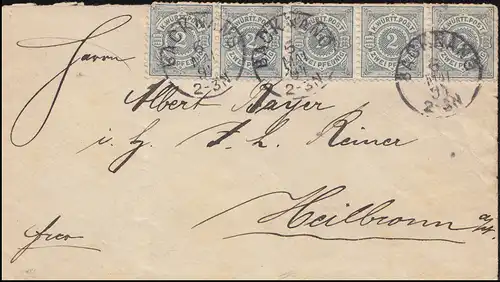 K. WÜRTT. POST 2 ZWEI PFENNIG
K. WÜRTT. POST 2 ZWEI PFENNIG
K. WÜRTT. POST 2 ZWEI PFENNIG
K. WÜRTT. POST 2 ZWEI PFENNIG
K. WÜRTT. POST 2 ZWEI PFENNIG
BACKNANG 5 91 2-3N
BACKNANG 5 91 2-3N
BACKNANG 5 91 2-3N
Herrn
Albert Bayer
i. H. F. L. Reiner
Heilbronn a/
frco